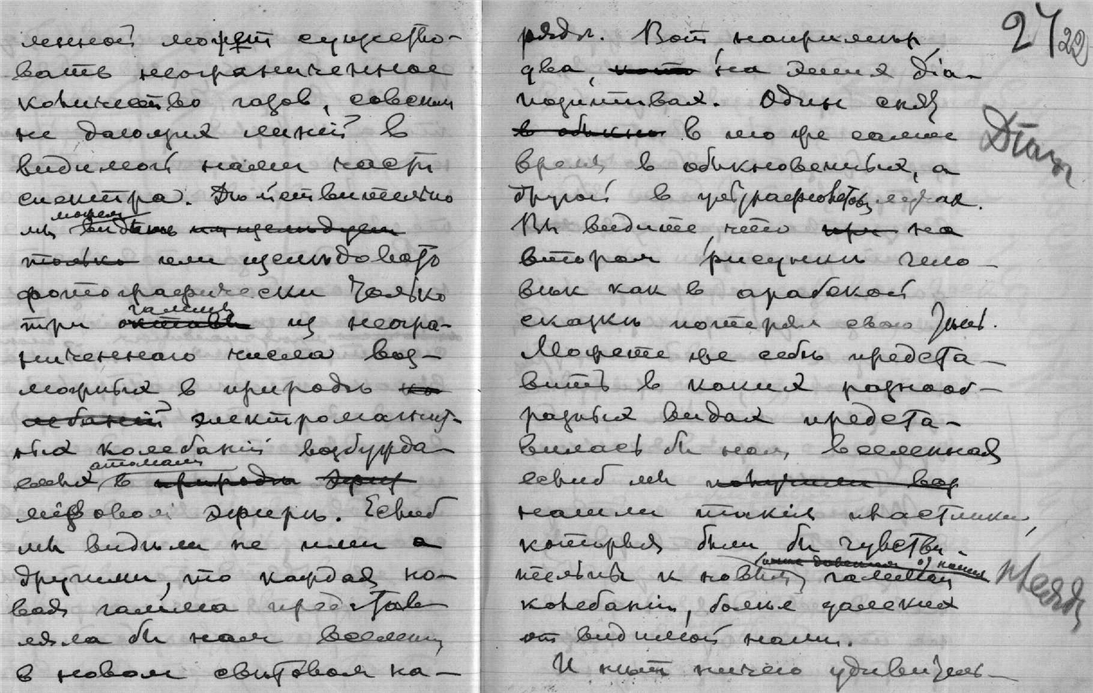 ленной может существо-
вать неограниченное
количество газов, совсем
не дающих линій в
видимой нами части
спектра. Дѣйствительно
можем
мы видѣть
только или изслѣдовать
фотографически только
гаммы
три октавы из неогра-
ниченнаго числа воз-
можных в природѣ ко-
лебаній электромагнит-
ных колебаній возбужда-
атомами
емых в природѣ эфир
міровом эфирѣ. Если б
мы видѣли не ими а
другими, то каждая но-
вая гамма представ-
ляла бы нам вселенну
в новом свѣтовом на-
рядѣ. Вот, например,
два, на экран діа-
позитива. Один снят
в обыкно в то же самое
время в обыкновенных, а
другой в ультрафіолетов лучах.
Вы видите, что при на
втором рисунки чело-
вѣк как в арабской
сказкѣ потерял свою тѣнь.
Можете же себѣ предста-
вить в каких разнооб-
разных видах предста-
вилась бы нам вселенная
если б мы получили воз
нашли такія пластинки,
которыя были бы чувстви-
тельны к новым гаммам
колебаній, болѣе далеких
от видимой нами.
И нѣт ничего удивитель-
27
22
Діап